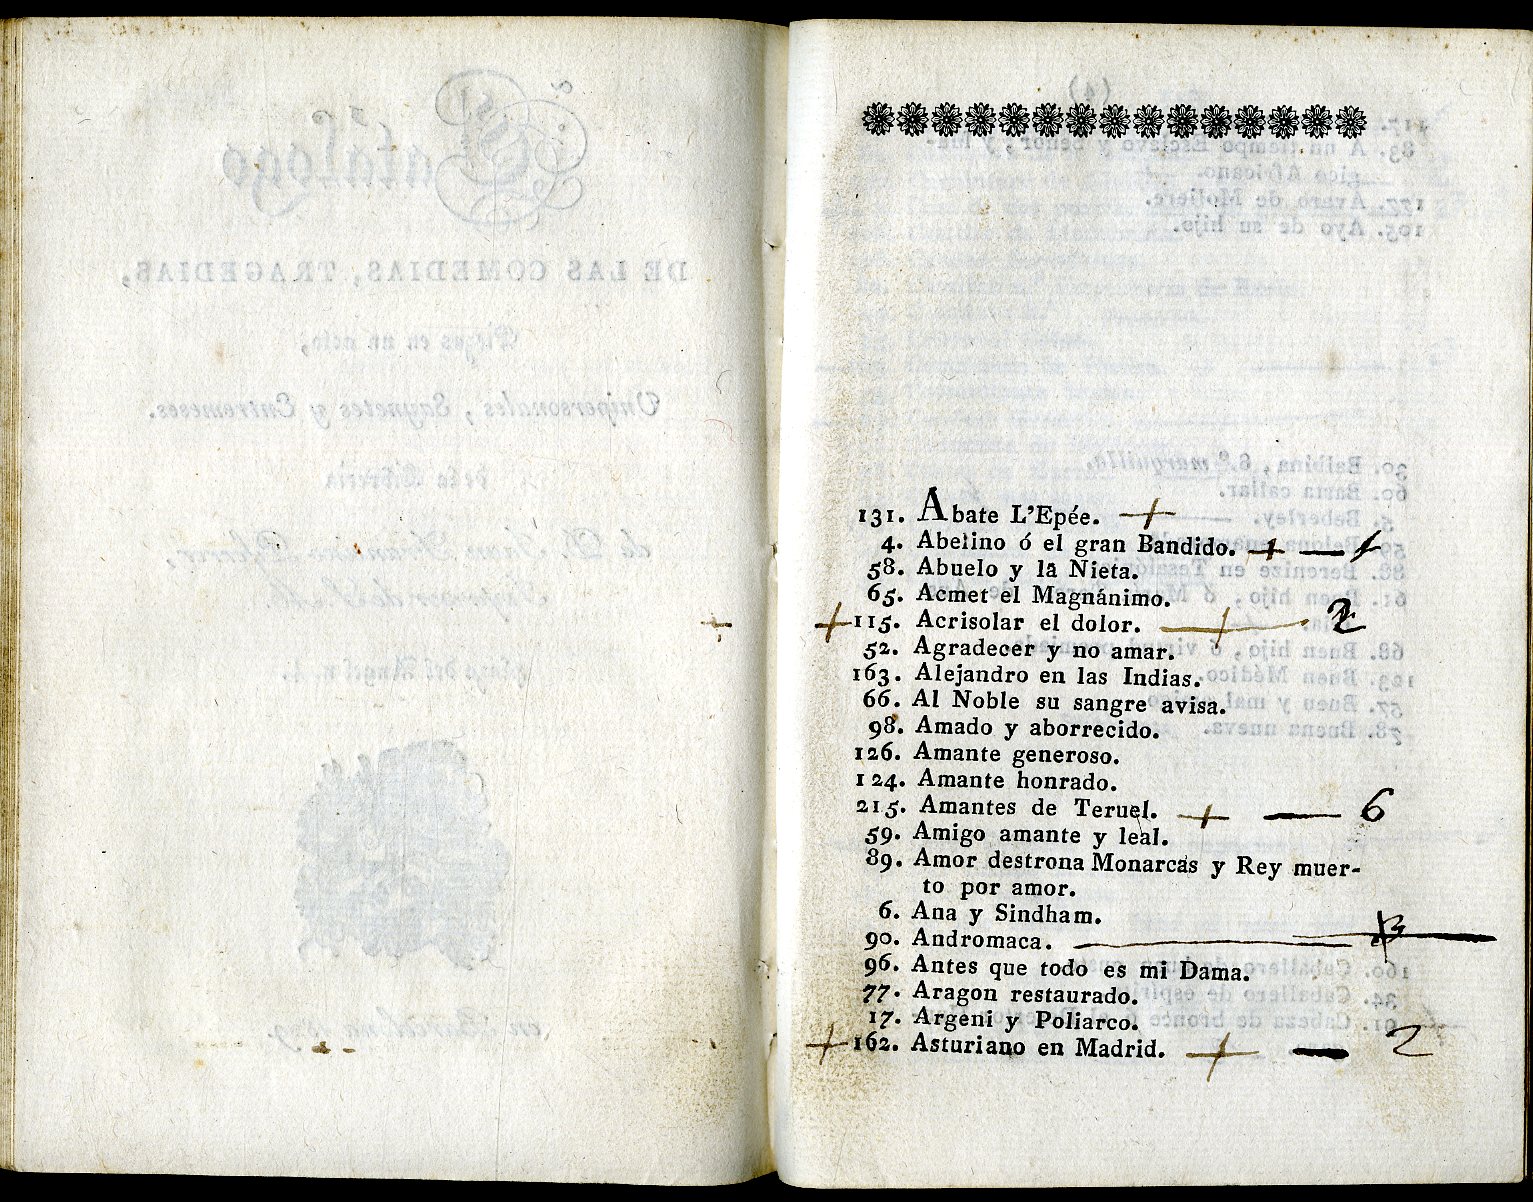 131. Abate L'Epée. +
4. Abelino ó el gran Bandido. + — 1
58. Abuelo y la Nieta.
65. Acmet el Magnánimo.
+ 115. Acrisolar el dolor. + 2
52. Agradecer y no amar.
163. Alejandro en las Indias.
66. Al Noble su sangre avisa.
98. Amado y aborrecido.
126. Amante generoso.
124. Amante honrado.
215. Amantes de Teruel. + — 6
59. Amigo amante y leal.
89. Amor destrona Monarcas y Rey muer-
to por amor.
6. Ana y Sindham.
90. Andromaca. —
96. Antes que todo es mi Dama.
77. Aragon restaurado.
17. Argeni y Poliarco.
+ 162. Asturiano en Madrid. + — 2